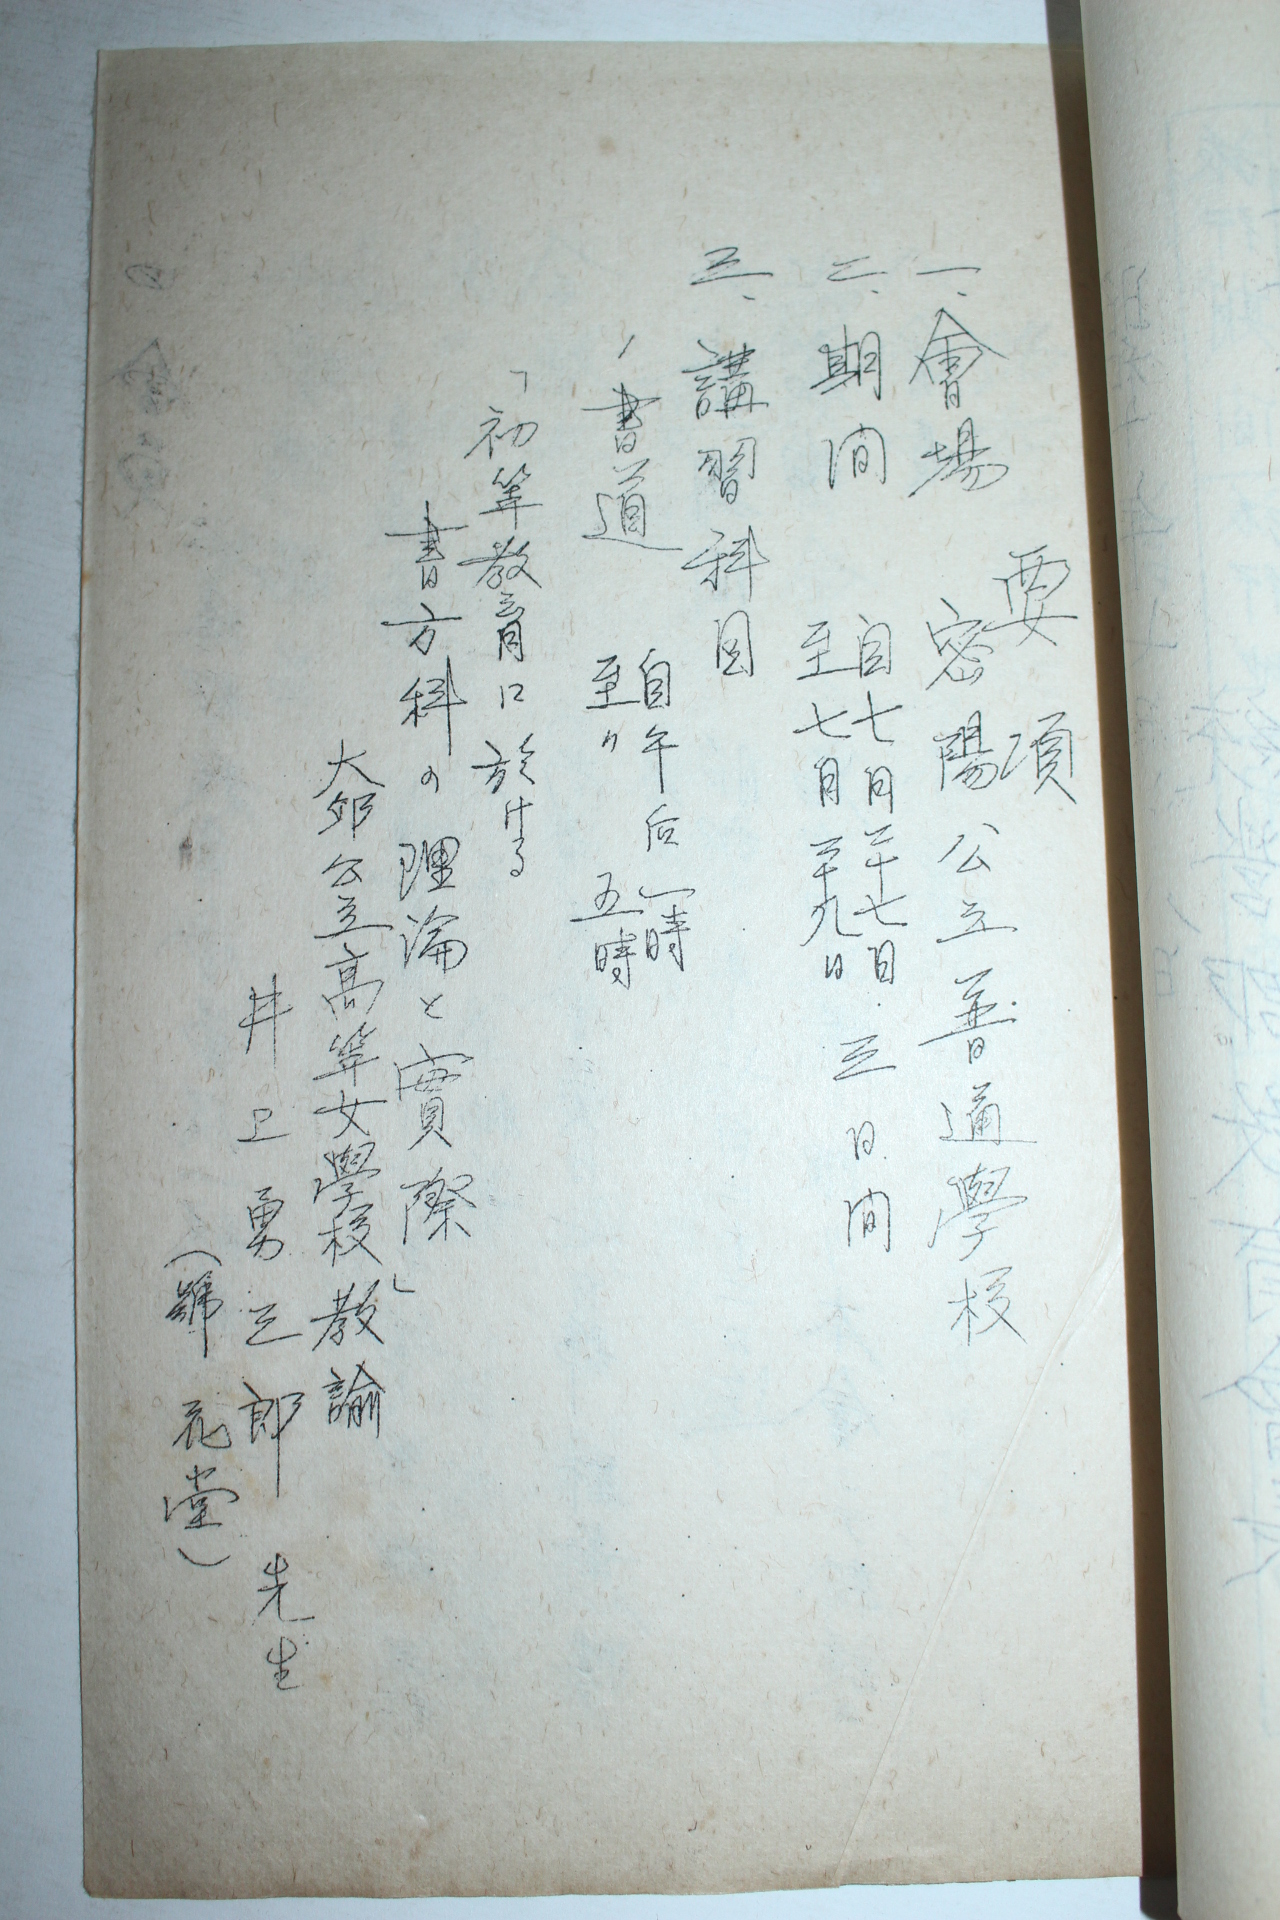 要項
一、會場　密陽公立普通學校
二、期間　自七月二十七日
至七月二十九日　三日間
三、講習科目
1 書道　自午后一時
至〃五時
「初等教育に於ける
書方科の理論と實際」
大邱公立高等女學校教諭
井上勇三郎先生
（號　花堂）